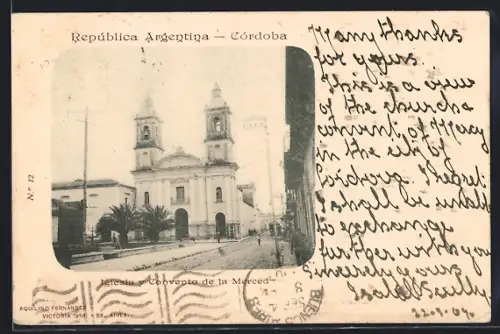 República Argentina — Córdoba
Many thanks
for yours.
This is a view
of the church &
convent of Mercy
in the city of
Cordova. I regret
I shall be unable
to exchange
further with you
Sincerely yours
22.9.04.
Nº 12
Iglesia y Convento de la Merced
AQUILINO FERNANDEZ
VICTORIA BS. AIRES
BUENOS